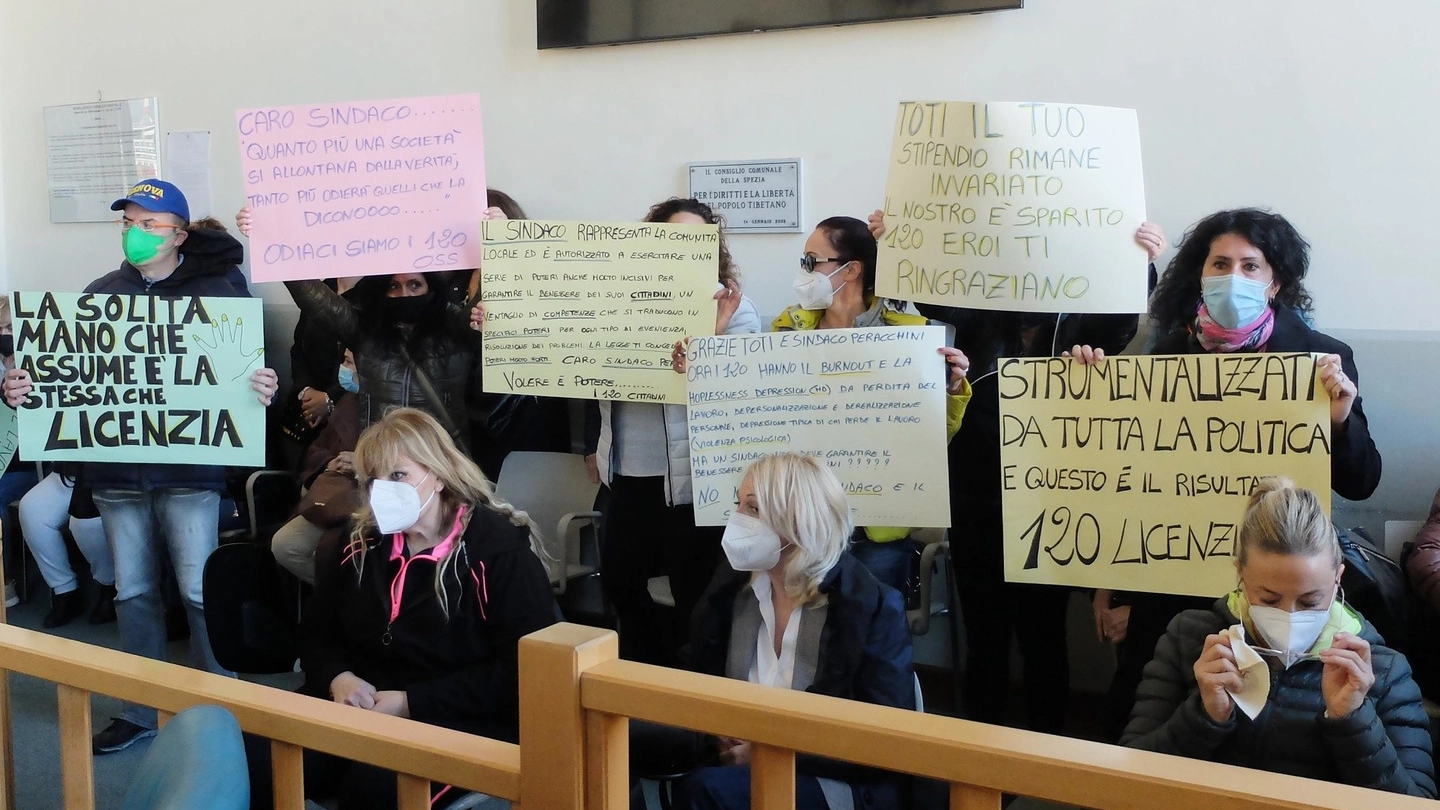 CARO SINDACO........
"QUANTO PIÙ UNA SOCIETÀ
SI ALLONTANA DALLA VERITÀ,
TANTO PIÙ ODIERÀ QUELLI CHE LA
DICONOOOO....."
ODIACI SIAMO I 120
OSS
LA SOLITA
MANO CHE
ASSUME È LA
STESSA CHE
LICENZIA
IL SINDACO RAPPRESENTA LA COMUNITÀ
LOCALE ED È AUTORIZZATO A ESERCITARE UNA
SERIE DI POTERI ANCHE MOLTO INCISIVI PER
GARANTIRE IL BENESSERE DEI SUOI CITTADINI, UN
VENTAGLIO DI COMPETENZE CHE SI TRADUCONO IN
SPECIFICI POTERI PER OGNI TIPO DI EVENIENZA
RISOLUZIONE DEI PROBLEMI. LA LEGGE TI
POTERI MOLTO FORTI CARO SINDACO
VOLERE È POTERE.........
120 CITTADINI
IL CONSIGLIO COMUNALE
DELLA SPEZIA
PER I DIRITTI E LA LIBERTÀ
DEL POPOLO TIBETANO
GRAZIE TOTI E SINDACO PERACCHINI
ORA I 120 HANNO IL BURNOUT E LA
HOPLESSNESS DEPRESSION (HD) DA PERDITA DEL
LAVORO, DEPERSONALIZZAZIONE E DEREALIZZAZIONE
PERSONALE, DEPRESSIONE TIPICA DI CHI PERDE IL LAVORO
(VIOLENZA PSICOLOGICA)
MA UN SINDACO NON DEVE GARANTIRE IL
BENESSERE ?????
NO E IL
TOTI IL TUO
STIPENDIO RIMANE
INVARIATO
IL NOSTRO È SPARITO
120 EROI TI
RINGRAZIANO
STRUMENTALIZZATI
DA TUTTA LA POLITICA
E QUESTO È IL
120